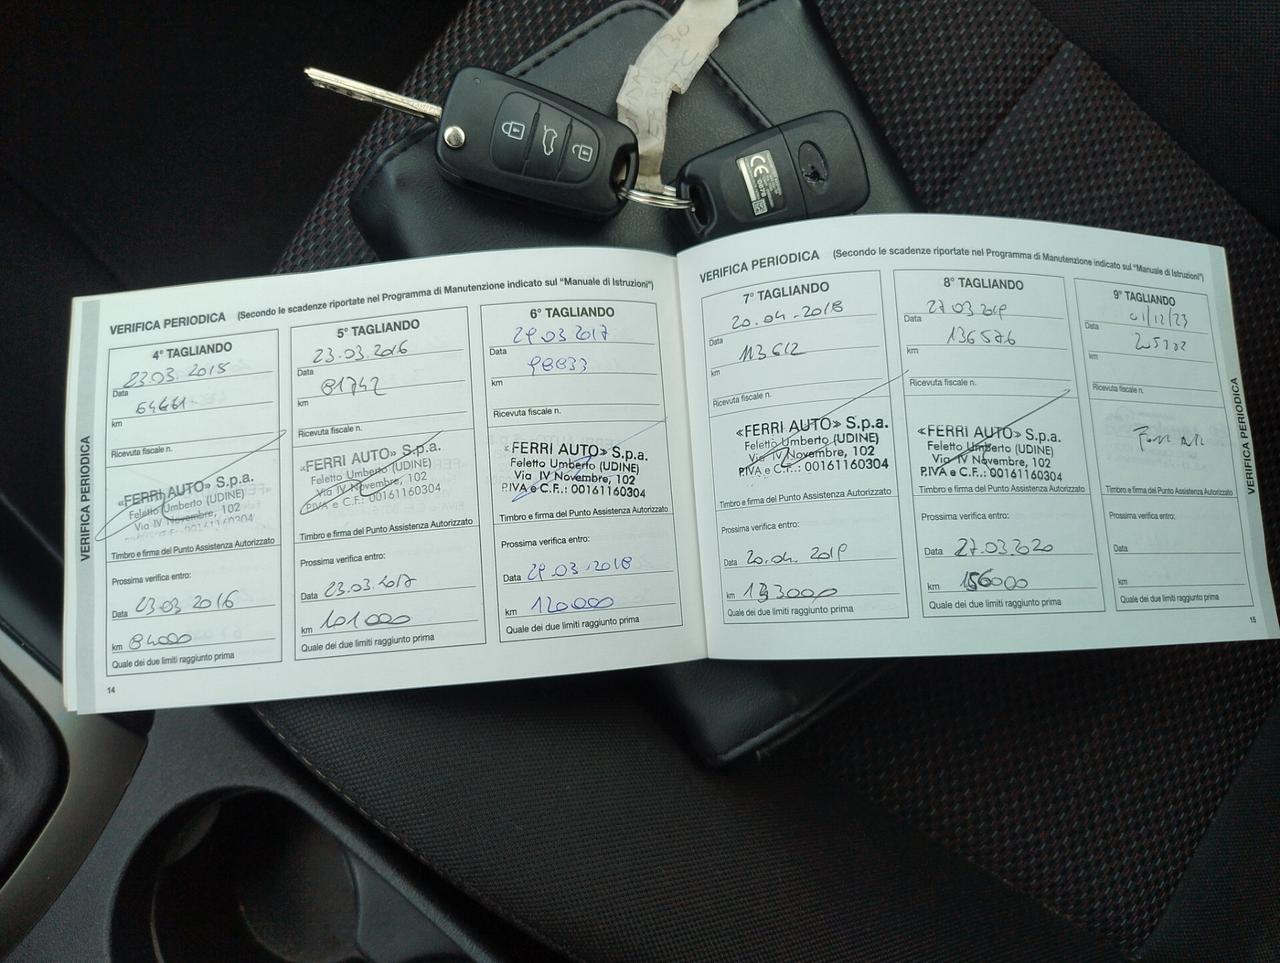 CE
VERIFICA PERIODICA (Secondo le scadenze riportate nel Programma di Manutenzione indicato sul "Manuale di Istruzioni")
VERIFICA PERIODICA
4° TAGLIANDO
23.03.2015
Data
km
Ricevuta fiscale n.
«FERRI AUTO» S.p.a.
Feletto Umberto (UDINE)
Via IV Novembre, 102
00161160304
Timbro e firma del Punto Assistenza Autorizzato
Prossima verifica entro:
Data 23.03 2016
km 84000
Quale dei due limiti raggiunto prima
14
5° TAGLIANDO
23.03.2016
Data
81742
km
Ricevuta fiscale n.
«FERRI AUTO» S.p.a.
Feletto Umberto (UDINE)
Via IV Novembre, 102
P.IVA e C.F.: 00161160304
Timbro e firma del Punto Assistenza Autorizzato
Prossima verifica entro:
Data 23.03.2017
km 101000
Quale dei due limiti raggiunto prima
6° TAGLIANDO
29.03.2017
Data
98833
km
Ricevuta fiscale n.
«FERRI AUTO» S.p.a.
Feletto Umberto (UDINE)
Via IV Novembre, 102
P.IVA e C.F.: 00161160304
Timbro e firma del Punto Assistenza Autorizzato
Prossima verifica entro:
Data 29.03.2018
km 120000
Quale dei due limiti raggiunto prima
VERIFICA PERIODICA (Secondo le scadenze riportate nel Programma di Manutenzione indicato sul "Manuale di Istruzioni")
7° TAGLIANDO
20.04.2018
Data
113612
km
Ricevuta fiscale n.
«FERRI AUTO» S.p.a.
Feletto Umberto (UDINE)
Via IV Novembre, 102
P.IVA e C.F.: 00161160304
Timbro e firma del Punto Assistenza Autorizzato
Prossima verifica entro:
Data 20.04.2019
km 133000
Quale dei due limiti raggiunto prima
8° TAGLIANDO
27.03.2019
Data
136576
km
Ricevuta fiscale n.
«FERRI AUTO» S.p.a.
Feletto Umberto (UDINE)
Via IV Novembre, 102
P.IVA e C.F.: 00161160304
Timbro e firma del Punto Assistenza Autorizzato
Prossima verifica entro:
Data 27.03.2020
km 156000
Quale dei due limiti raggiunto prima
9° TAGLIANDO
01/12/23
Data
km
Ricevuta fiscale n.
Timbro e firma del Punto Assistenza Autorizzato
Prossima verifica entro:
Data
km
Quale dei due limiti raggiunto prima
15
VERIFICA PERIODICA